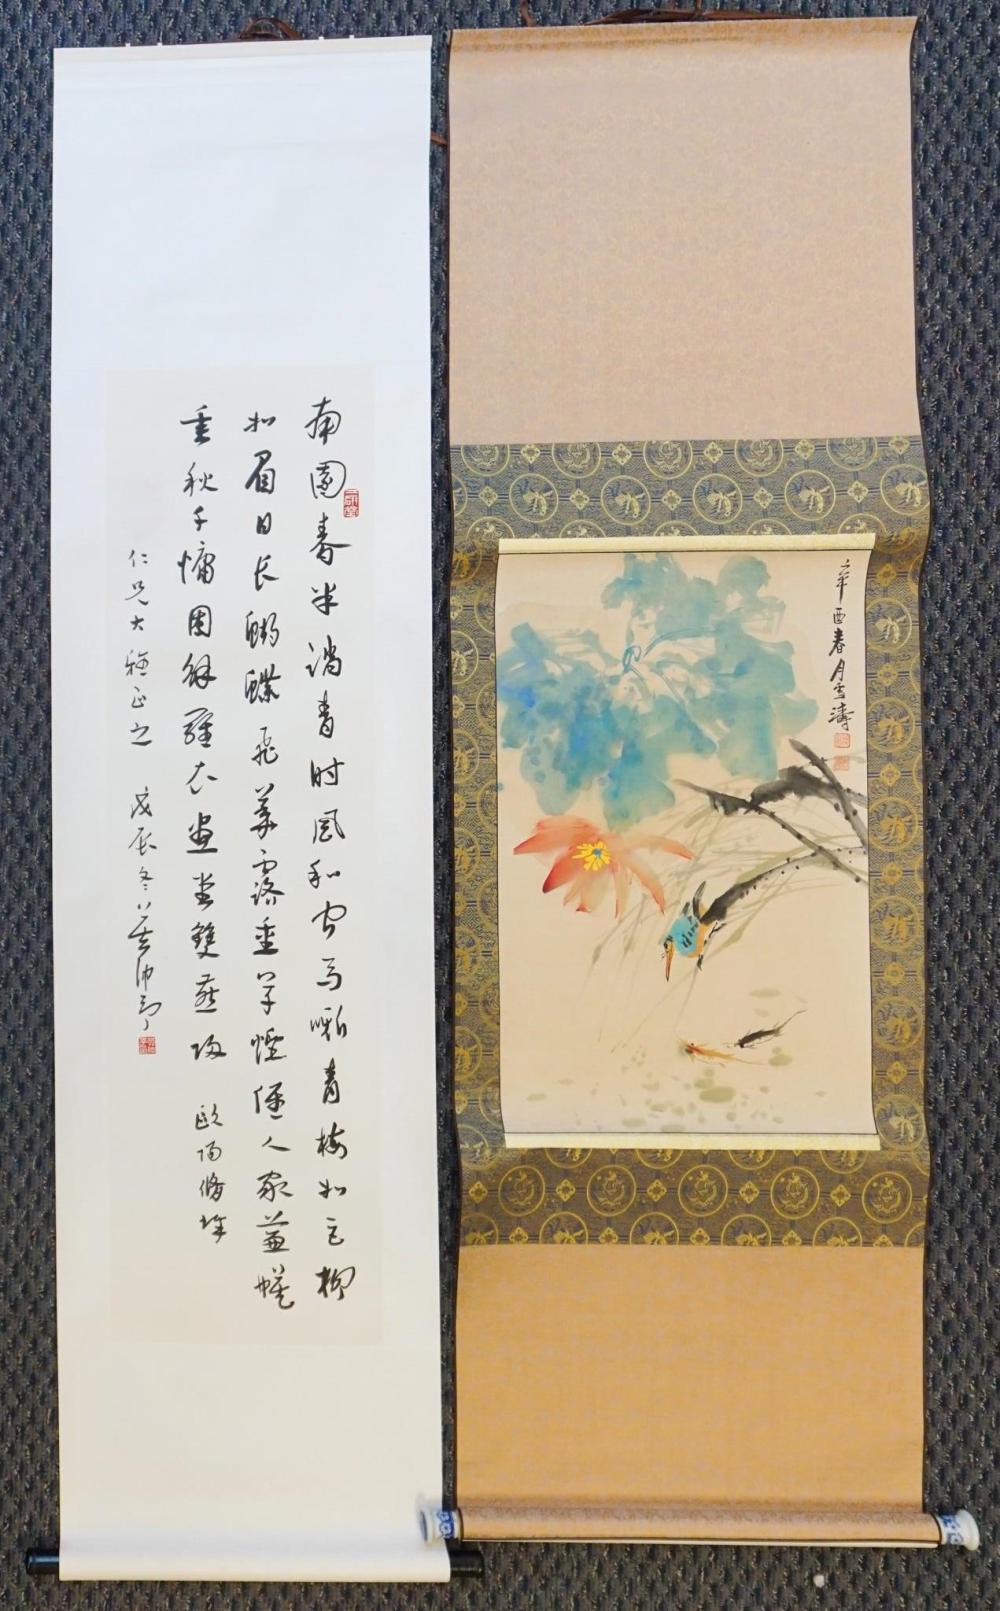 南園春半踏青时風和闻馬嘶青梅如豆柳
如眉日长蝴蝶飛華露重草煙低人家簾幙
垂秋千慵困解羅衣畫堂雙燕歸 歐陽修詞
仁兄大雅正之 戊辰冬
辛酉春月雪濤